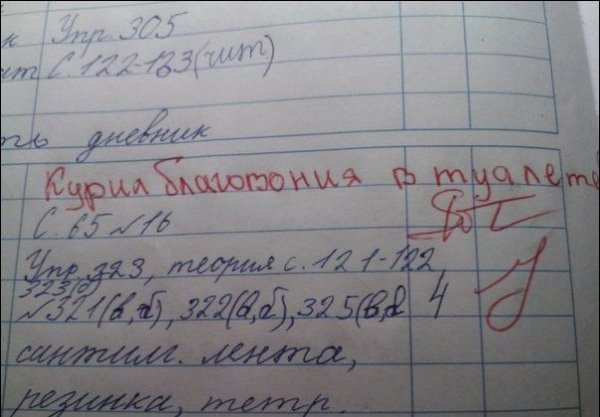 к Упр. 305
ит С. 122-123 (чит)
ть дневник
Курил благовония в туалете
С. 65 №16
Упр. 323, теория с. 121-122,
323(б)
№321(в,б), 322(в,б), 325(в,б 4
сантим. лента,
резинка, тетр.